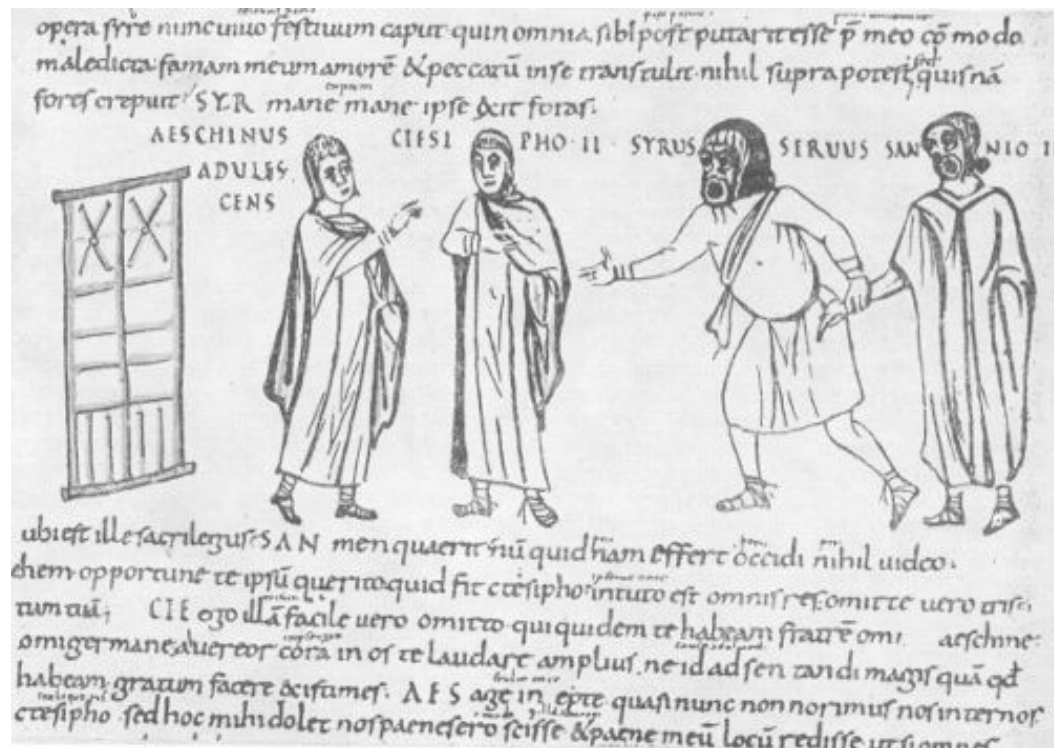 opera syre nunc vivo festivum caput quin omnia sibi post putarit esse p̄ meo cōmodo
maledicta famam meum amorē & peccatū inse transtulit. nihil supra potest, quis nā
fores crepuit SYR mane mane ipse exit foras.
AESCHINUS CTESIPHO·II· SYRUS SERUUS SANNIO II
ADULES
CENS
ubi est ille sacrilegus· SAN men quaerit nū quid nam effert occidi nihil uideo.
ehem opportune te ipsū querito quid fit ctesipho· in tuto est omnis res· omitte uero tris
tum tuā; CTE ego illā facile uero omitto qui quidem te habeam fratrē omi aeschine
omi germane, a uereor corā in os te laudare amplius, ne id adsentandi magis quā qd
habeam gratum facere existimes. AES age inepte quasi nunc non norimus nos inter nos
ctesipho· sed hoc mihi dolet nos paene sero scisse & paene meū locū redisse ut si omnes